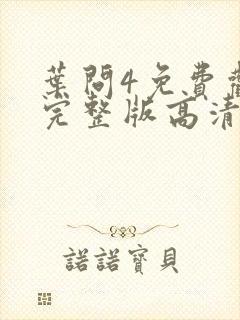 葉問4免費
完整版高清
諾諾寶貝